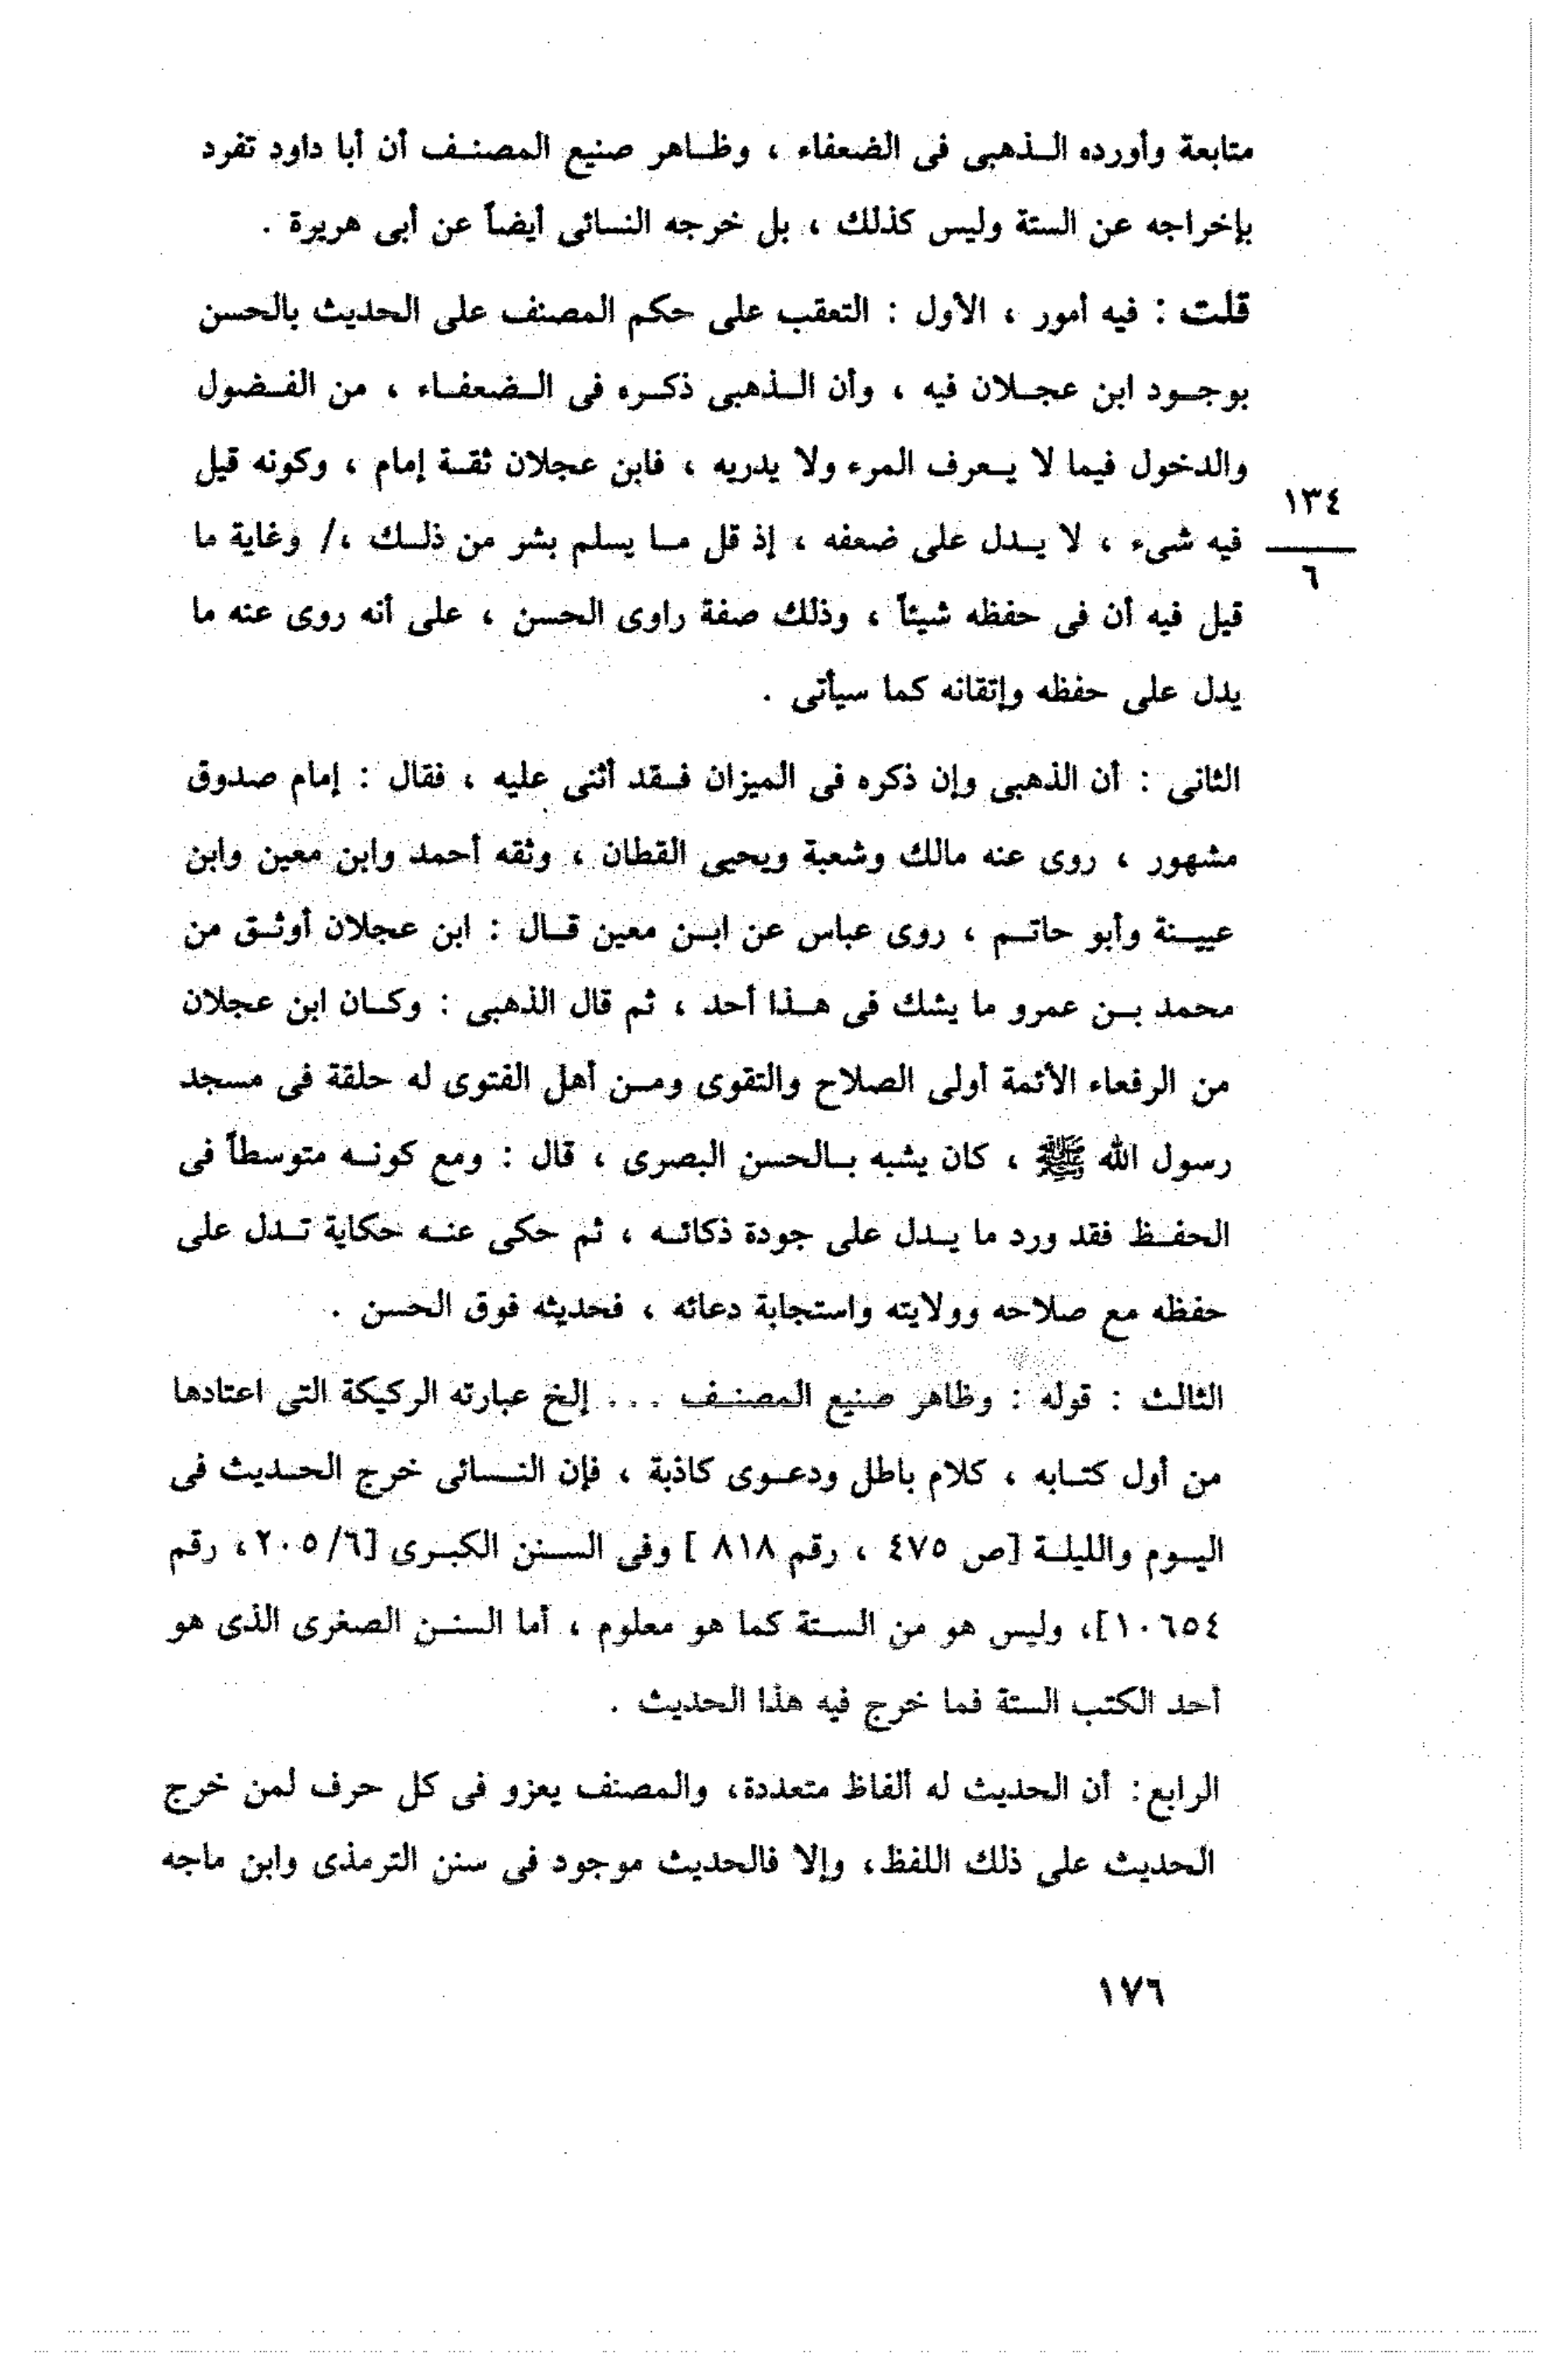 متابعة وأورده الذهبى فى الضعفاء ، وظاهر صنيع المصنف أن أبا داود تفرد
بإخراجه عن الستة وليس كذلك ، بل خرجه النسائى أيضاً عن أبى هريرة .
قلت : فيه أمور ، الأول : التعقب على حكم المصنف على الحديث بالحسن
بوجود ابن عجلان فيه ، وأن الذهبى ذكره فى الضعفاء ، من الفضول
والدخول فيما لا يعرف المرء ولا يدريه ، فابن عجلان ثقة إمام ، وكونه قيل
١٣٤
فيه شىء ، لا يدل على ضعفه ، إذ قل ما يسلم بشر من ذلك ،/ وغاية ما
٦
قيل فيه أن فى حفظه شيئاً ، وذلك صفة راوى الحسن ، على أنه روى عنه ما
يدل على حفظه وإتقانه كما سيأتى .
الثانى : أن الذهبى وإن ذكره فى الميزان فقد أثنى عليه ، فقال : إمام صدوق
مشهور ، روى عنه مالك وشعبة ويحيى القطان ، وثقه أحمد وابن معين وابن
عيينة وأبو حاتم ، روى عباس عن ابن معين قال : ابن عجلان أوثق من
محمد بن عمرو ما يشك فى هذا أحد ، ثم قال الذهبى : وكان ابن عجلان
من الرفعاء الأئمة أولى الصلاح والتقوى ومن أهل الفتوى له حلقة فى مسجد
رسول الله ﷺ ، كان يشبه بالحسن البصرى ، قال : ومع كونه متوسطاً فى
الحفظ فقد ورد ما يدل على جودة ذكائه ، ثم حكى عنه حكاية تدل على
حفظه مع صلاحه وولايته واستجابة دعائه ، فحديثه فوق الحسن .
الثالث : قوله : وظاهر صنيع المصنف ... إلخ عبارته الركيكة التى اعتادها
من أول كتابه ، كلام باطل ودعوى كاذبة ، فإن النسائى خرج الحديث فى
اليوم والليلة [ص ٤٧٥ ، رقم ٨١٨ ] وفى السنن الكبرى [٦/ ٢٠٥، رقم
١٠٦٥٤]، وليس هو من الستة كما هو معلوم ، أما السنن الصغرى الذى هو
أحد الكتب الستة فما خرج فيه هذا الحديث .
الرابع: أن الحديث له ألفاظ متعددة، والمصنف يعزو فى كل حرف لمن خرج
الحديث على ذلك اللفظ، وإلا فالحديث موجود فى سنن الترمذى وابن ماجه
١٧٦